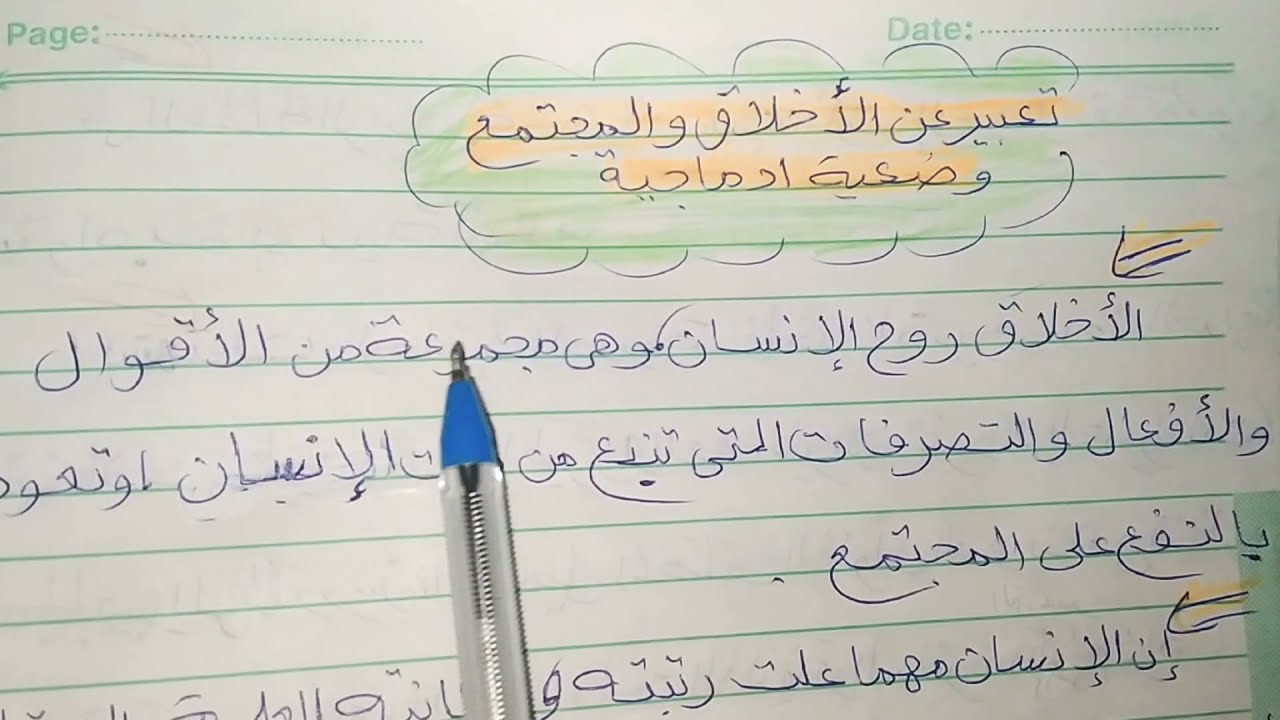 Page: Date:
تعبير عن الأخلاق والمجتمع
وضعية ادماجية
الأخلاق روح الإنسان، وهي مجموعة من الأقوال
والأفعال والتصرفات التي تنبع من الإنسان، وتعود
بالنفع على المجتمع.
إن الإنسان مهما علت رتبته و